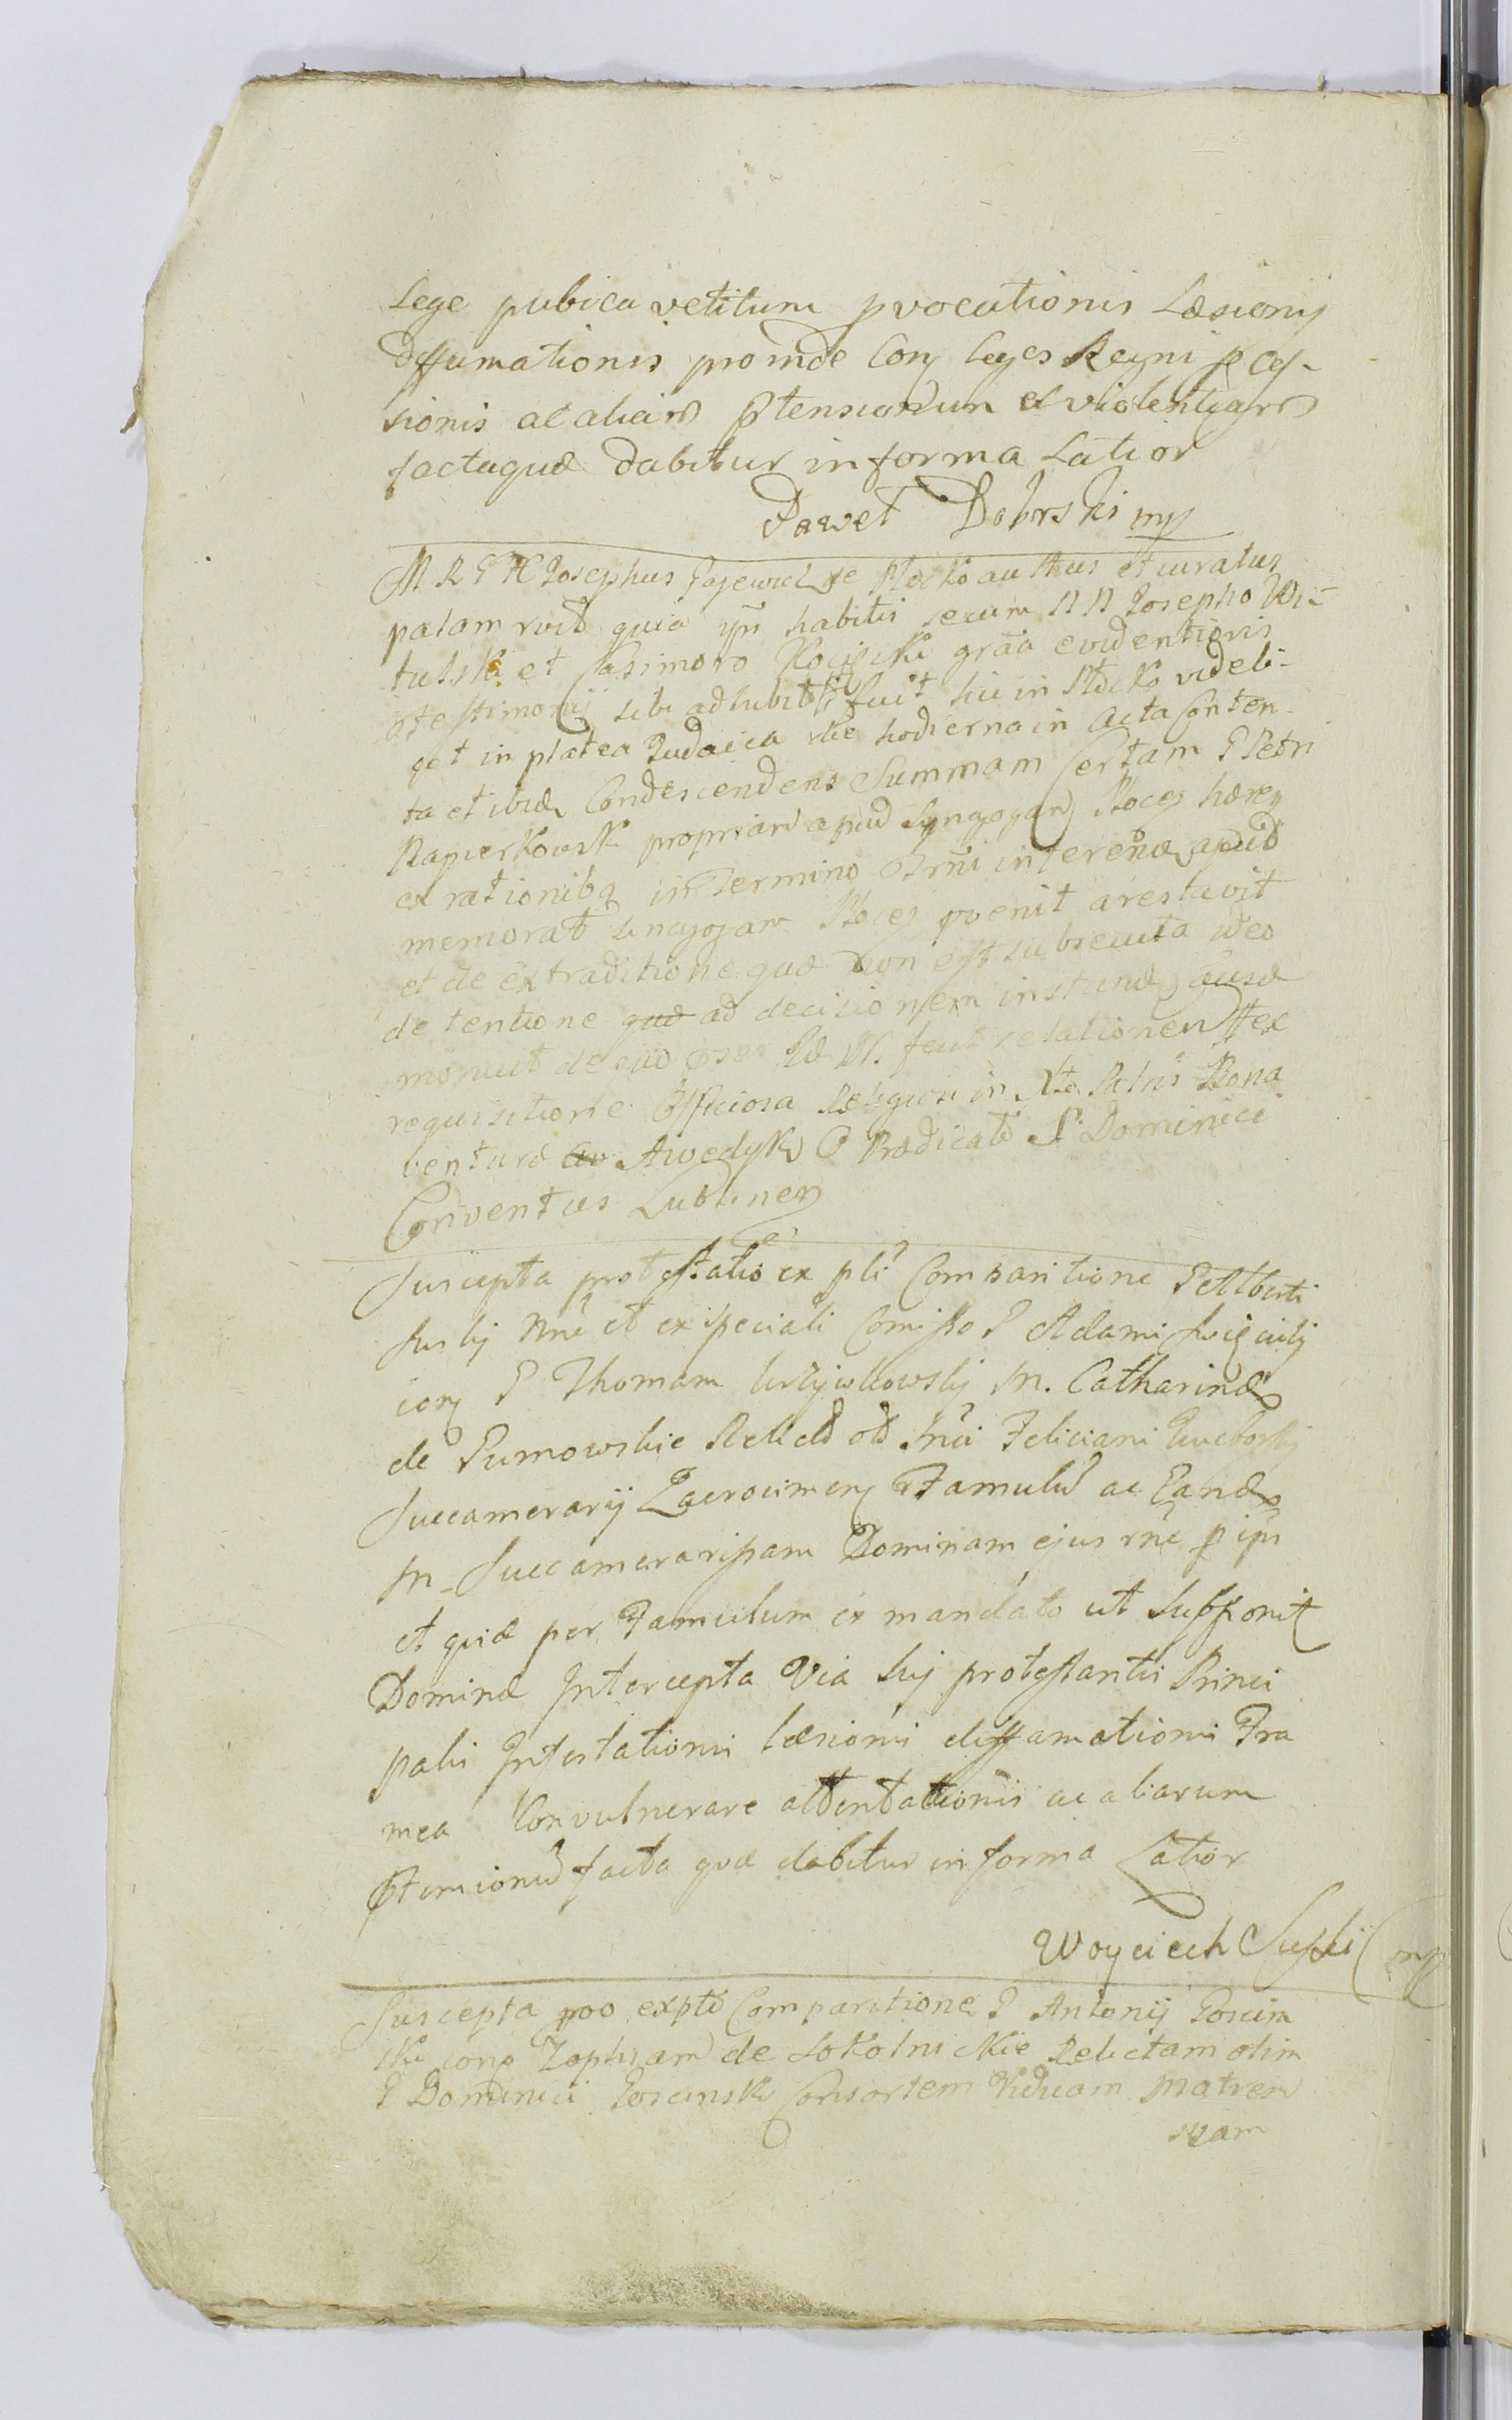 Lege publica vetitum pvocationis Læsionis
diffamationis proinde Con Leges Regni p ces-
sionis ac aliaru ptensionum et violentiaru
factaquæ dabitur in forma Latior
Paweł Dobrski mp
M R G H Josephus Gajewicz de Płocko authus et juratus
palam rcvit quia ipse habitis secum N N Josepho Wi-
tulski et Casimoro Płocki graa evidentioris
testimonij sibi adhibit fuit hic in Płocko videli-
cet in platea Judaica die hodierna in acta Conten-
ta et ibidem Condescendens Summam Certam G Petri
Napierkowski propriam apud Synagogam Ploceń hæreñ
ex rationibq in Termino apud
memorat Sinagogam Ploceñ pvenit arestavit
et de extraditione quæ non est subsecuta ideo
detentione quæ ad decisionem instand causæ
monuit de quo fecit relationem ex
requisitione Officiosa Religiosi in Xto Patris Bona
venturæ Awedyk O Prædicato S. Dominici
Conventus Lublineñ
Suscepta protestatio ex pli Comparitione G Alberti
Suski nne et ex speciali Comisso G Adami Święcicki
con G Thomam Krzywkowski M. Catharinæ
de Pumowskie Relictæ od Mci Feliciani
Succamerarij Zacrocimeñ Famulu ac Eande
M. Succamerarissam Dominam ejus rne p ipu
et quæ per Famulum ex mandato ut Supponit
Dominæ Intercepta Via Suj protestantis Princi
palis Infestationis læsionis diffamationis Fra
mea Convulnerare attentationis ac aliarum
ptensionu facta quæ dabitur in forma Latior
Woyciech Suski mp
Suscepta ppo ex pto Comparitione G Antonij Goscim
ski con Zophiam de Sokolnickie Relictam olim
G Dominici Goscinski Consortem Viduam Matrem
suam